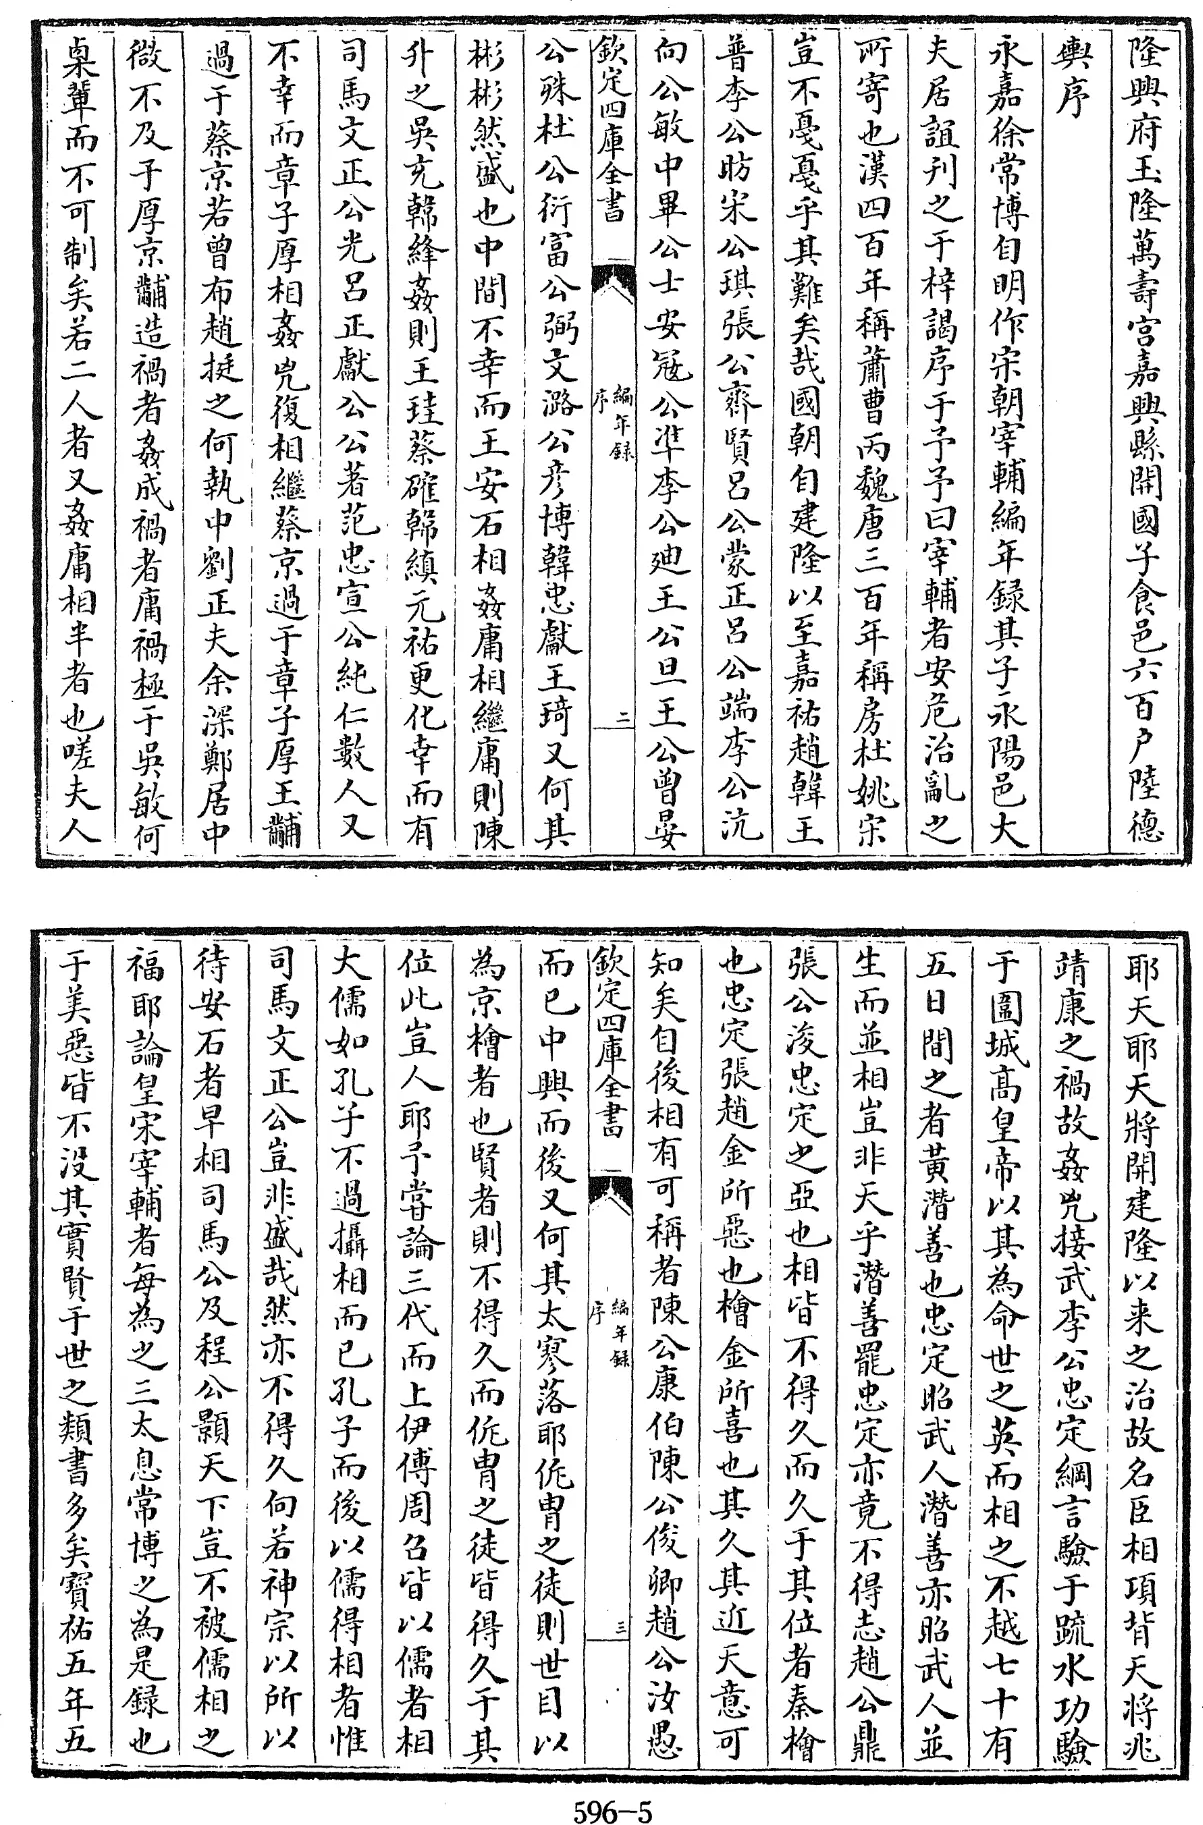 隆興府玉隆萬壽宮嘉興縣開國子食邑六百户陸德
輿序
永嘉徐常博自明作宋朝宰輔編年録其子永陽邑大
夫居誼刋之于梓謁序于予予曰宰輔者安危治亂之
所寄也漢四百年稱蕭曹丙魏唐三百年稱房杜姚宋
豈不戞戞乎其難矣哉國朝自建隆以至嘉祐趙韓王
普李公昉宋公琪張公齊賢呂公蒙正呂公端李公沆
向公敏中畢公士安冦公凖李公廸王公旦王公曾晏
欽定四庫全書
編年録
序
二
公殊杜公衍富公弼文潞公彦博韓忠獻王琦又何其
彬彬然盛也中間不幸而王安石相姦庸相繼庸則陳
升之吳充韓絳姦則王珪蔡確韓縝元祐更化幸而有
司馬文正公光呂正獻公公著范忠宣公純仁數人又
不幸而章子厚相姦兇復相繼蔡京過于章子厚王黼
過于蔡京若曾布趙挺之何執中劉正夫余深鄭居中
微不及子厚京黼造禍者姦成禍者庸禍極于吳敏何
㮚輩而不可制矣若二人者又姦庸相半者也嗟夫人
耶天耶天將開建隆以来之治故名臣相項背天將兆
靖康之禍故姦兇接武李公忠定綱言驗于疏水功驗
于圍城高皇帝以其為命世之英而相之不越七十有
五日間之者黄潛善也忠定昭武人潛善亦昭武人並
生而並相豈非天乎潛善罷忠定亦竟不得志趙公鼎
張公浚忠定之亞也相皆不得久而久于其位者秦檜
也忠定張趙金所惡也檜金所喜也其久其近天意可
知矣自後相有可稱者陳公康伯陳公俊卿趙公汝愚
欽定四庫全書
編年録
序
三
而已中興而後又何其太寥落耶侂胄之徒則世目以
為京檜者也賢者則不得久而侂胄之徒皆得久于其
位此豈人耶予嘗論三代而上伊傅周召皆以儒者相
大儒如孔子不過攝相而已孔子而後以儒得相者惟
司馬文正公豈非盛哉然亦不得久向若神宗以所以
待安石者早相司馬公及程公顥天下豈不被儒相之
福耶論皇宋宰輔者每為之三太息常博之為是録也
于美惡皆不没其實賢于世之類書多矣寶祐五年五
596-5